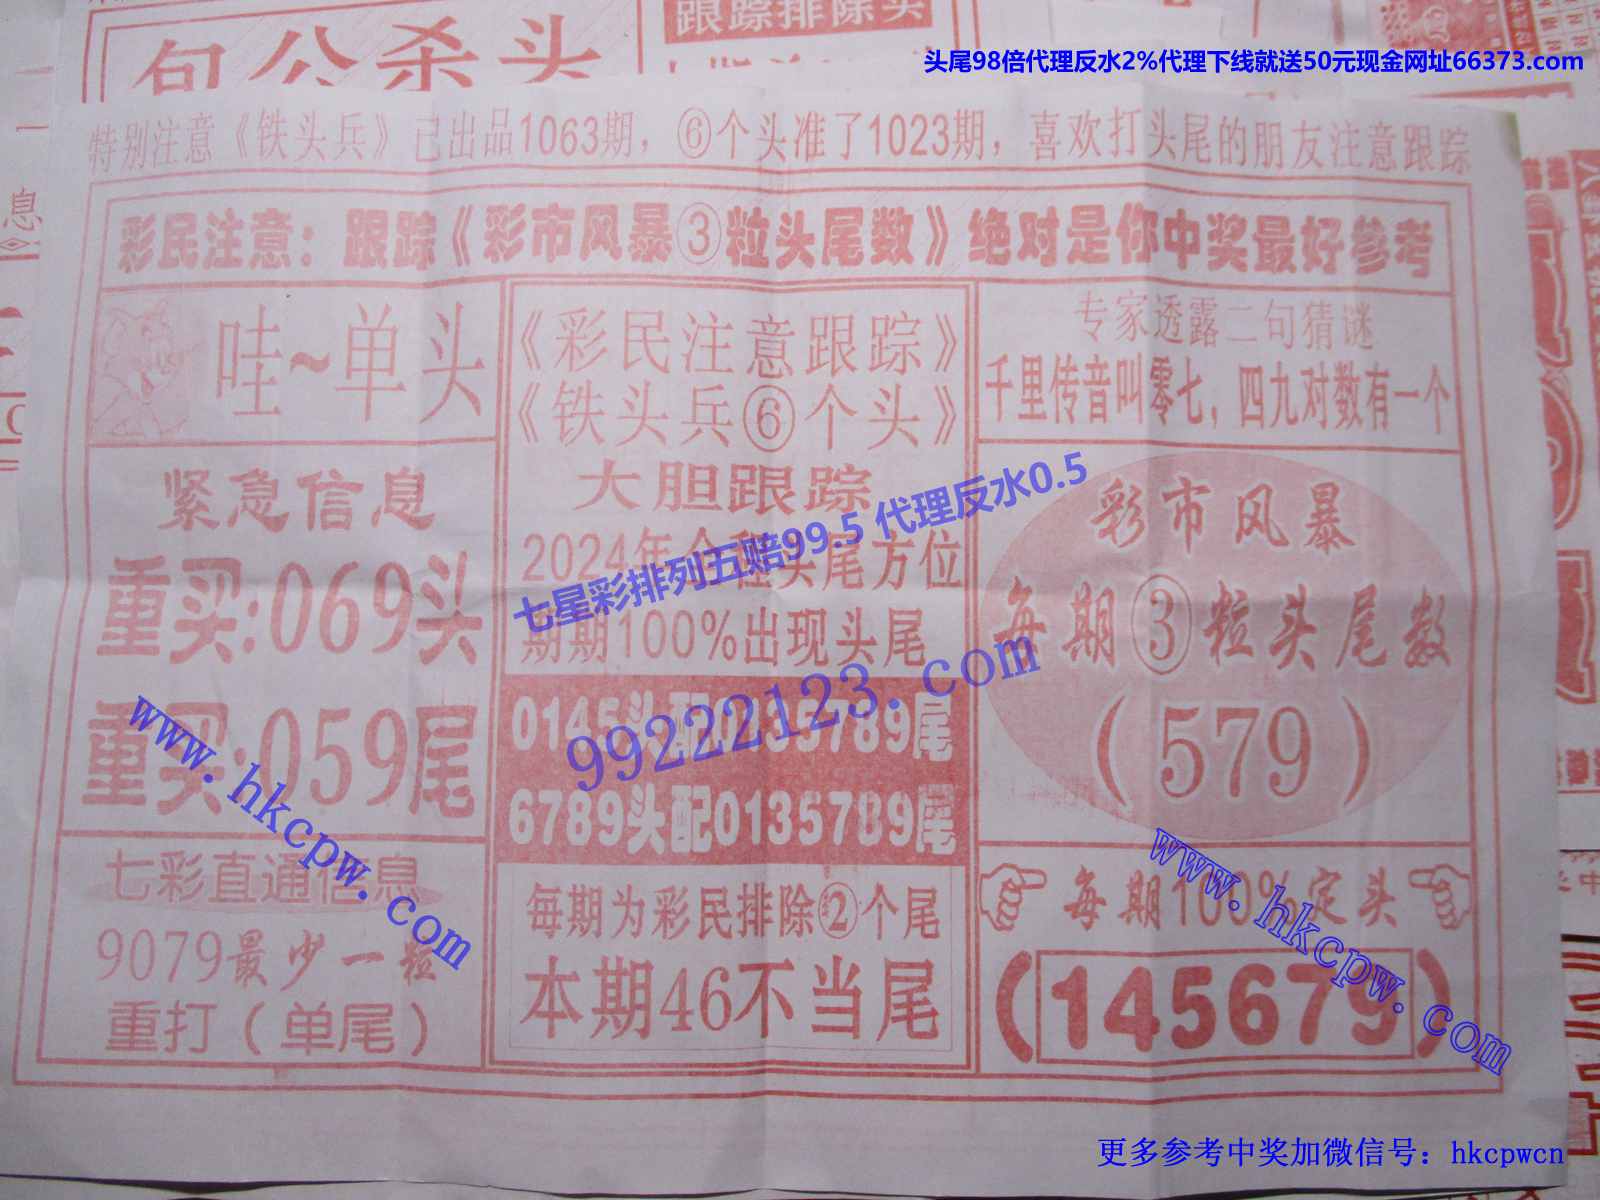 跟踪排除头
包公杀头
头尾98倍代理反水2%代理下线就送50元现金网址66373.com
特别注意《铁头兵》已出品1063期，⑥个头准了1023期，喜欢打头尾的朋友注意跟踪
彩民注意：跟踪《彩市风暴③粒头尾数》绝对是你中奖最好参考
哇~单头
紧急信息
重买:069头
重买:059尾
七彩直通信息
9079最少一粒
重打（单尾）
《彩民注意跟踪》
《铁头兵⑥个头》
大胆跟踪
2024年全种头尾方位
期期100%出现头尾
0145头配0235789尾
6789头配0135789尾
每期为彩民排除②个尾
本期46不当尾
专家透露二句猜谜
千里传音叫零七，四九对数有一个
彩市风暴
每期③粒头尾数
（579）
每期100%定头
（145679）
七星彩排列五赔99.5 代理反水0.5
99222123.com
www.hkcpw.com
www.hkcpw.com
更多参考中奖加微信号：hkcpwcn
息